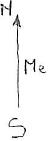 N
Me
S